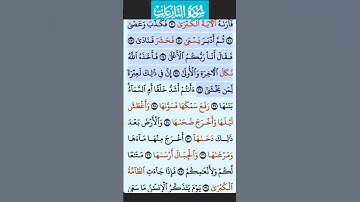 سُورَةُ النَّازِعَاتِ
فَأَرَىٰهُ ٱلۡأٓيَةَ ٱلۡكُبۡرَىٰ ۝٢٠ فَكَذَّبَ وَعَصَىٰ ۝٢١
ثُمَّ أَدۡبَرَ يَسۡعَىٰ ۝٢٢ فَحَشَرَ فَنَادَىٰ ۝٢٣
فَقَالَ أَنَا۠ رَبُّكُمُ ٱلۡأَعۡلَىٰ ۝٢٤ فَأَخَذَهُ ٱللَّهُ
نَكَالَ ٱلۡأٓخِرَةِ وَٱلۡأُولَىٰٓ ۝٢٥ إِنَّ فِي ذَٰلِكَ لَعِبۡرَةٗ
لِّمَن يَخۡشَىٰٓ ۝٢٦ ءَأَنتُمۡ أَشَدُّ خَلۡقًا أَمِ ٱلسَّمَآءُۚ
بَنَىٰهَا ۝٢٧ رَفَعَ سَمۡكَهَا فَسَوَّىٰهَا ۝٢٨ وَأَغۡطَشَ
لَيۡلَهَا وَأَخۡرَجَ ضُحَىٰهَا ۝٢٩ وَٱلۡأَرۡضَ بَعۡدَ
ذَٰلِكَ دَحَىٰهَآ ۝٣٠ أَخۡرَجَ مِنۡهَا مَآءَهَا
وَمَرۡعَىٰهَا ۝٣١ وَٱلۡجِبَالَ أَرۡسَىٰهَا ۝٣٢ مَتَٰعٗا
لَّكُمۡ وَلِأَنۡعَٰمِكُمۡ ۝٣٣ فَإِذَا جَآءَتِ ٱلطَّآمَّةُ
ٱلۡكُبۡرَىٰ ۝٣٤ يَوۡمَ يَتَذَكَّرُ ٱلۡإِنسَٰنُ مَا سَعَىٰ